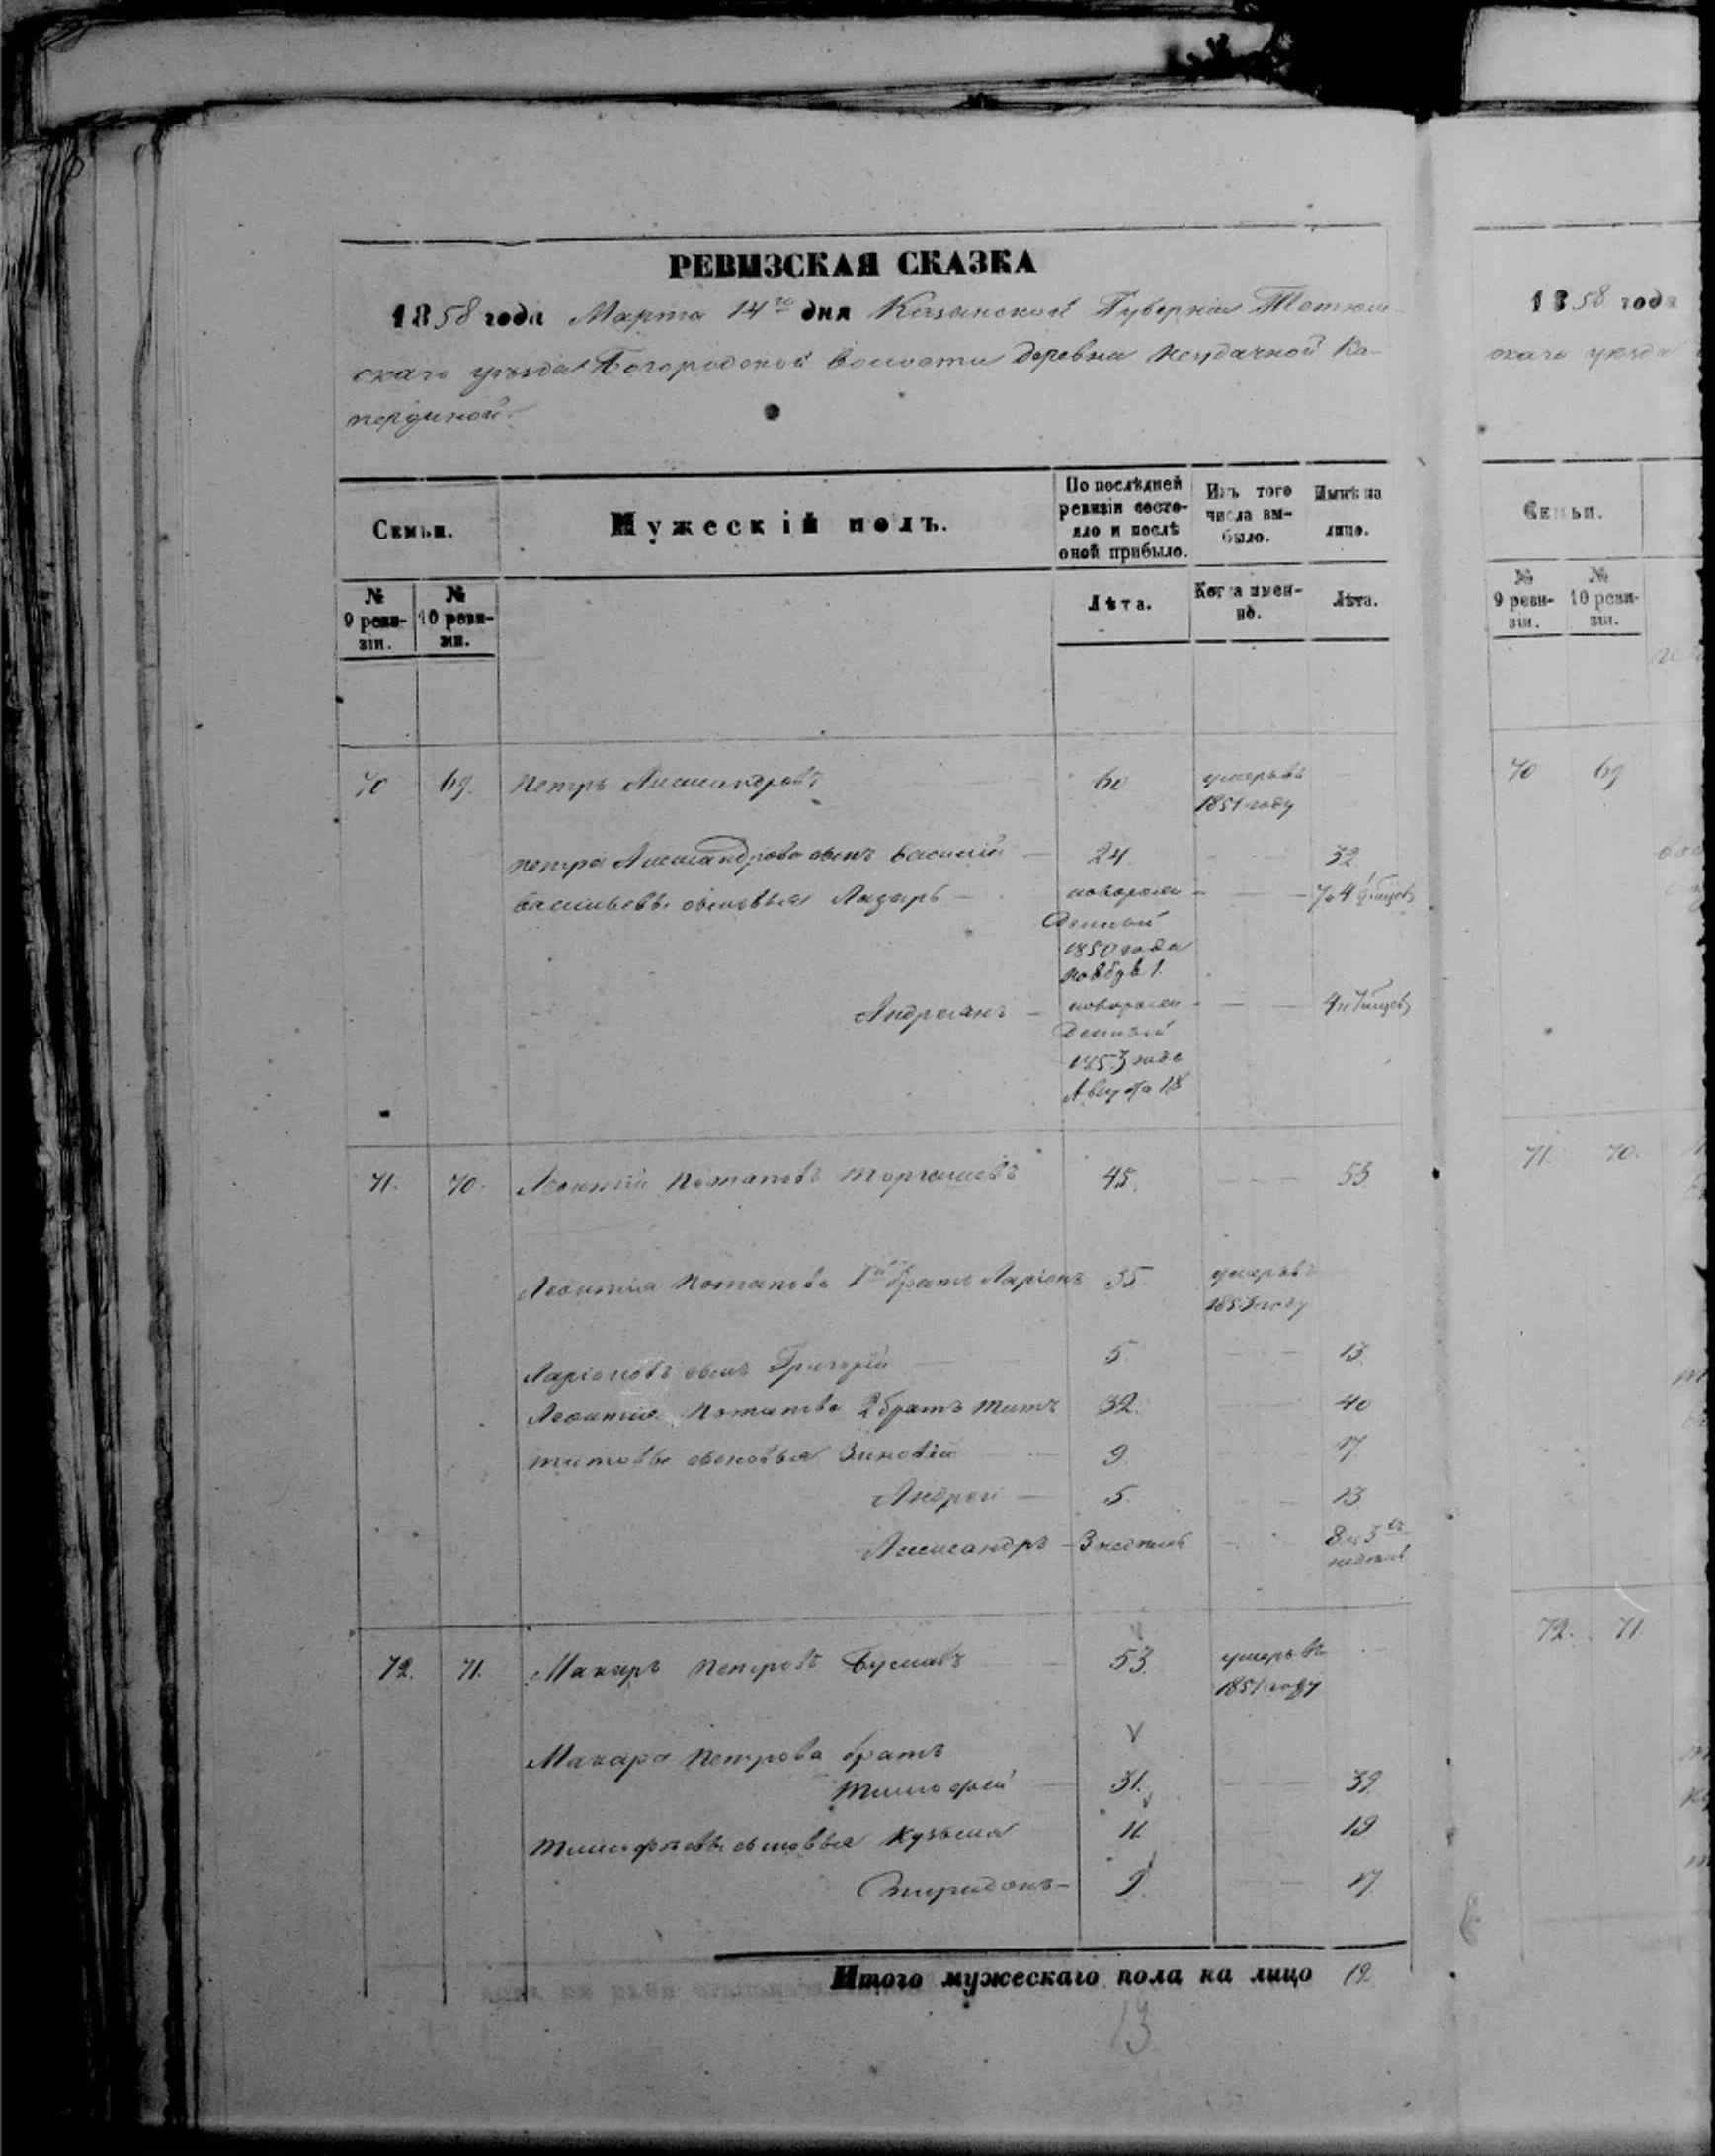 РЕВИЗСКАЯ СКАЗКА
1858 года Марта 14го дня Казанской Губерніи Тетюш-
скаго уѣзда Богородской волости деревни Неудачной Ка-
Семьи.
Мужескій полъ.
По послѣдней ревизіи состояло и послѣ оной прибыло.
Изъ того числа выбыло.
Нынѣ на лицо.
№ 9 ревизіи.
№ 10 ревизіи.
Лѣта.
Когда именно.
Лѣта.
70 69. Петръ Александровъ 60 умеръ въ
1851 году
Петра Александрова сынъ Василій 24 32
Васильевы сыновья Лазарь новорож-
денный
1850 года
Ноября 1.
Андреянъ новорож-
денный
1853 года
Августа 18
71. 70. Леонтій Потаповъ 45. 53
Леонтія Потапова 1й братъ Ларіонъ 35. умеръ въ
Ларіоновъ сынъ Григорій 5. 13.
Леонтія Потапова 2 братъ Титъ 32. 40
Титовы сыновья Зиновій 9 17.
Андрей 5. 13
Александръ 3 недѣль 8 и 3хъ
недѣль
72. 71. Макаръ Петровъ 53. умеръ въ
1851 году
Макара Петрова братъ
Тимофей 31. 39.
Тимофѣевы сыновья Кузьма 11 19
Спиридонъ 9. 17.
Итого мужескаго пола на лицо 12
13
1858 года
скаго уѣзда
Семьи.
№ 9 ревизіи.
№ 10 ревизіи.
70 69
71. 70.
72. 71